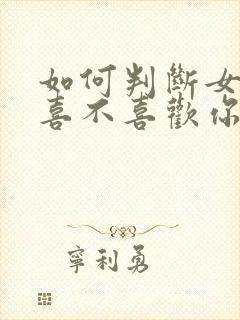 如何判斷女
喜不喜歡你
寧利勇